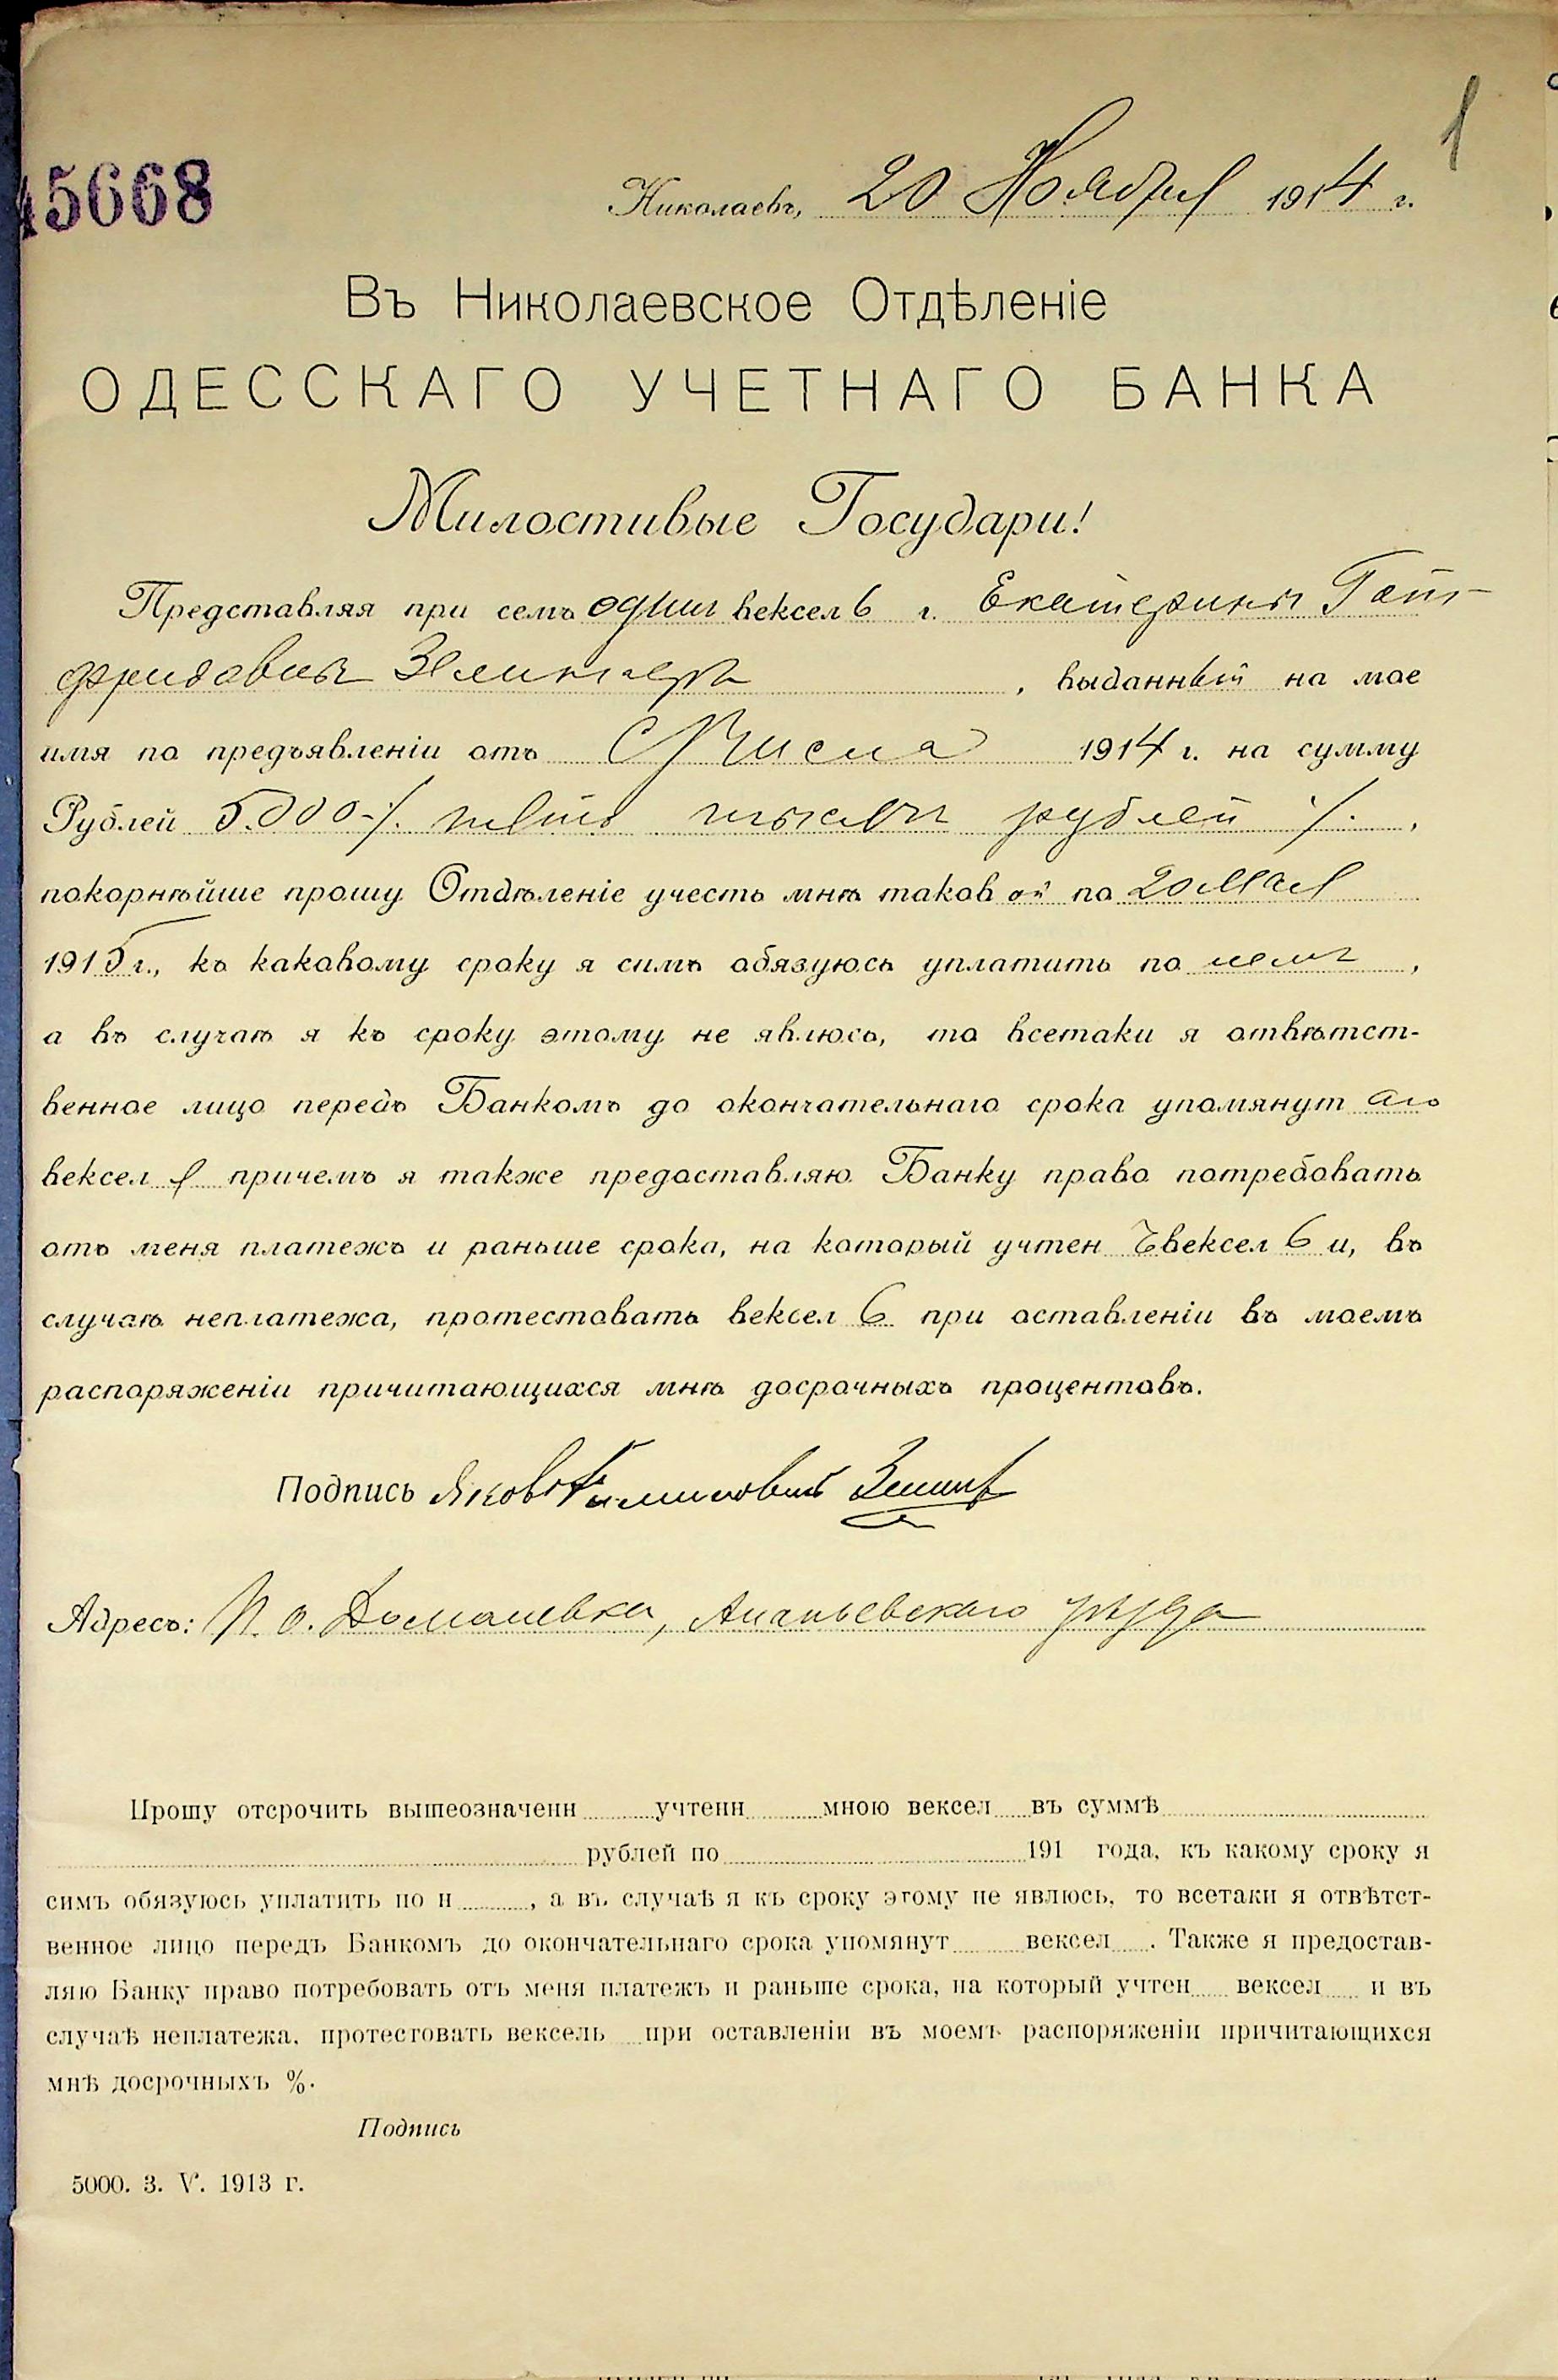 1
45668
Николаевъ, 20 Ноября 1914 г.
Въ Николаевское Отдѣленіе
ОДЕССКАГО УЧЕТНАГО БАНКА
Милостивые Государи!
Представляя при семъ один вексель г. Екатерины Гот-
фридовны , выданный на мое
имя по предъявленіи отъ с/числа 1914 г. на сумму
Рублей 5.000-/. пять тысяч рублей /. ,
покорнѣйше прошу Отдѣленіе учесть мнѣ таковой по 20 Мая
1915 г., къ каковому сроку я симъ обязуюсь уплатить по нему ,
а въ случаѣ я къ сроку этому не явлюсь, то всетаки я отвѣтст-
венное лицо передъ Банкомъ до окончательнаго срока упомянутаго
векселя причемъ я также предоставляю Банку право потребовать
отъ меня платежъ и раньше срока, на который учтенъ вексель и, въ
случаѣ неплатежа, протестовать вексель при оставленіи въ моемъ
распоряженіи причитающихся мнѣ досрочныхъ процентовъ.
Подпись Яков
Адресъ: П. о. Домашевка, Ананьевскаго уѣзда
Прошу отсрочить вышеозначенн учтенн мною вексел въ суммѣ
рублей по 191 года, къ какому сроку я
симъ обязуюсь уплатить по н , а въ случаѣ я къ сроку этому не явлюсь, то всетаки я отвѣтст-
венное лицо передъ Банкомъ до окончательнаго срока упомянут вексел . Также я предостав-
ляю Банку право потребовать отъ меня платежъ и раньше срока, на который учтен вексел и въ
случаѣ неплатежа, протестовать вексель при оставленіи въ моемъ распоряженіи причитающихся
мнѣ досрочныхъ %.
Подпись
5000. 3. V. 1913 г.